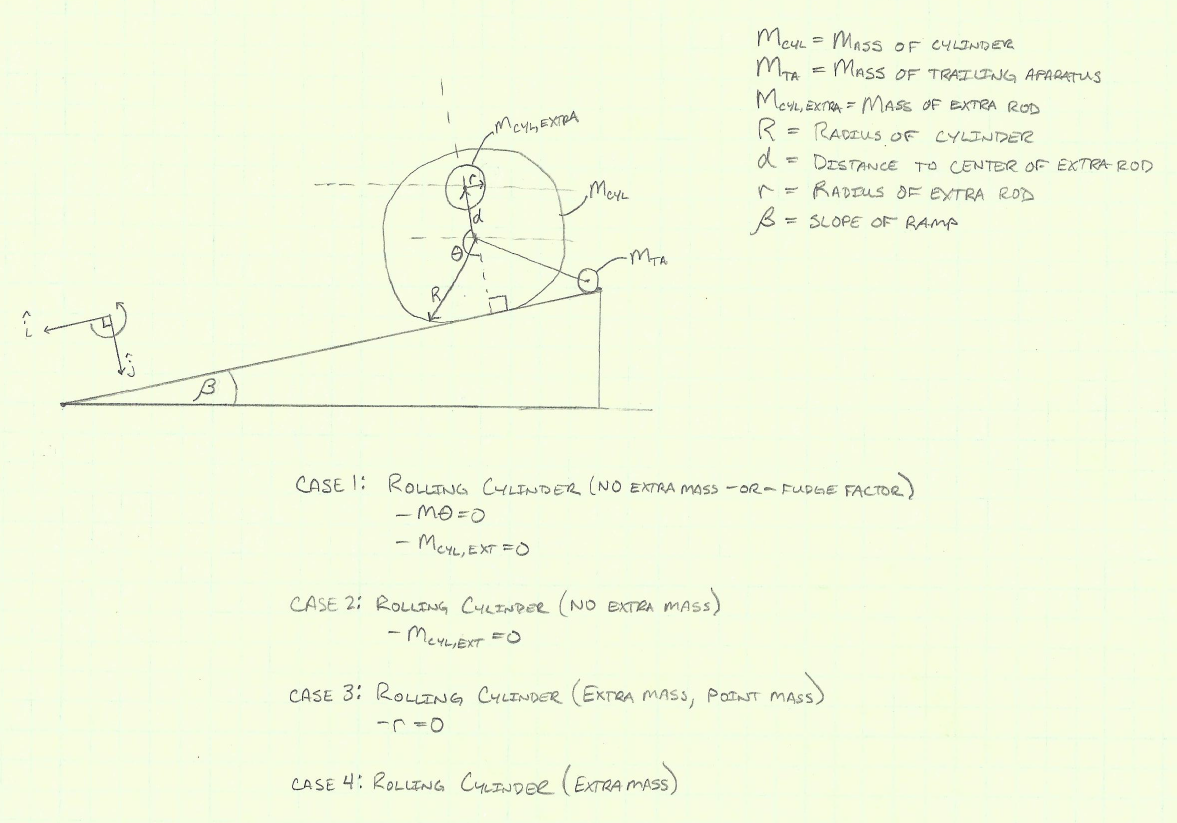 MCYL = MASS OF CYLINDER
MTA = MASS OF TRAILING APARATUS
MCYL,EXTRA = MASS OF EXTRA ROD
R = RADIUS OF CYLINDER
d = DISTANCE TO CENTER OF EXTRA ROD
r = RADIUS OF EXTRA ROD
β = SLOPE OF RAMP
MCYL,EXTRA
r
MCYL
d
θ
MTA
R
î
ĵ
β
CASE 1: ROLLING CYLINDER (NO EXTRA MASS -OR- FUDGE FACTOR)
- Mθ = 0
- MCYL,EXT = 0
CASE 2: ROLLING CYLINDER (NO EXTRA MASS)
- MCYL,EXT = 0
CASE 3: ROLLING CYLINDER (EXTRA MASS, POINT MASS)
- r = 0
CASE 4: ROLLING CYLINDER (EXTRA MASS)